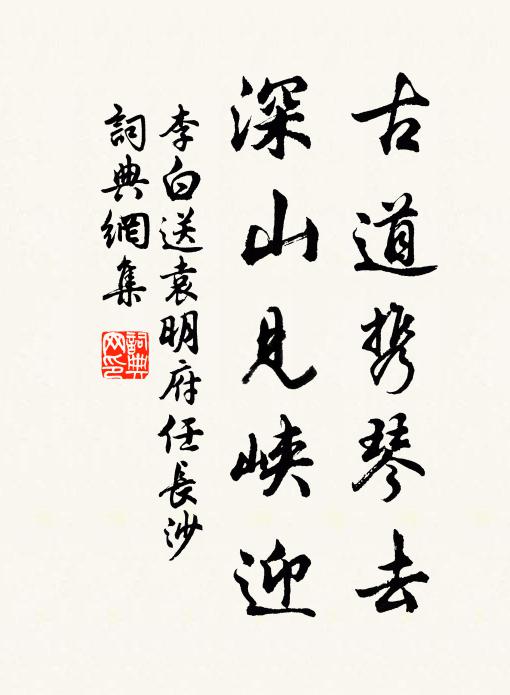 古道携琴去
深山見峡迎
李白送袁明府任長沙
詞典網集
詞典网印